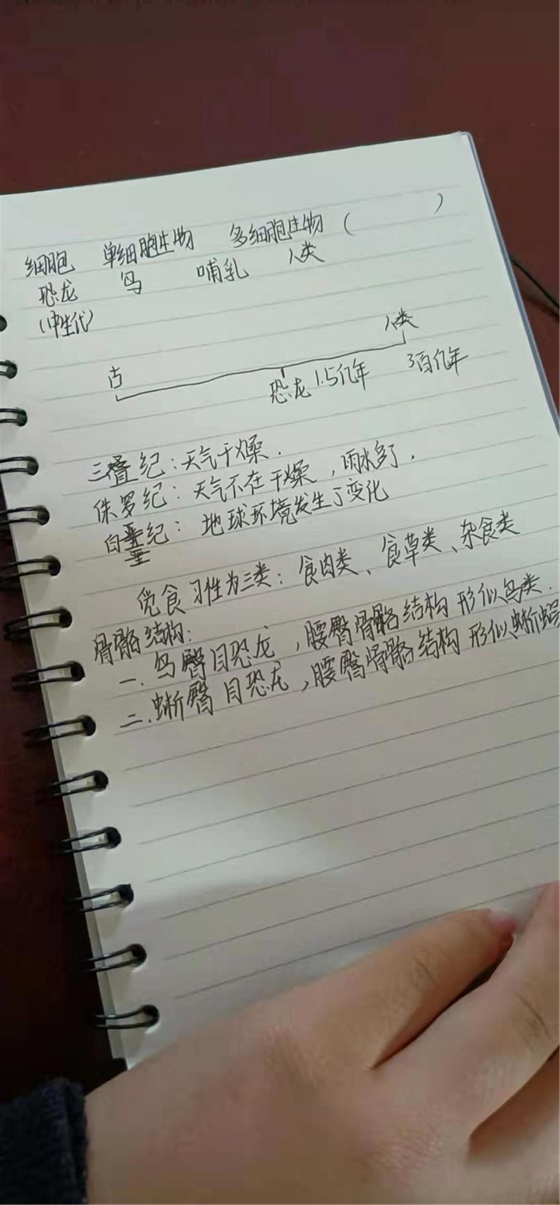 细胞 单细胞生物 多细胞生物 ( )
恐龙 鸟 哺乳 人类
(中生代)
人类
古
恐龙 1.5亿年 3百亿年
三叠纪:天气干燥.
侏罗纪:天气不在干燥,雨水多了.
白垩纪:地球环境发生了变化
觅食习性为三类:食肉类、食草类、杂食类
骨骼结构:
一.鸟臀目恐龙,腰臀骨骼结构形似鸟类.
二.蜥臀目恐龙,腰臀骨骼结构形似蜥蜴